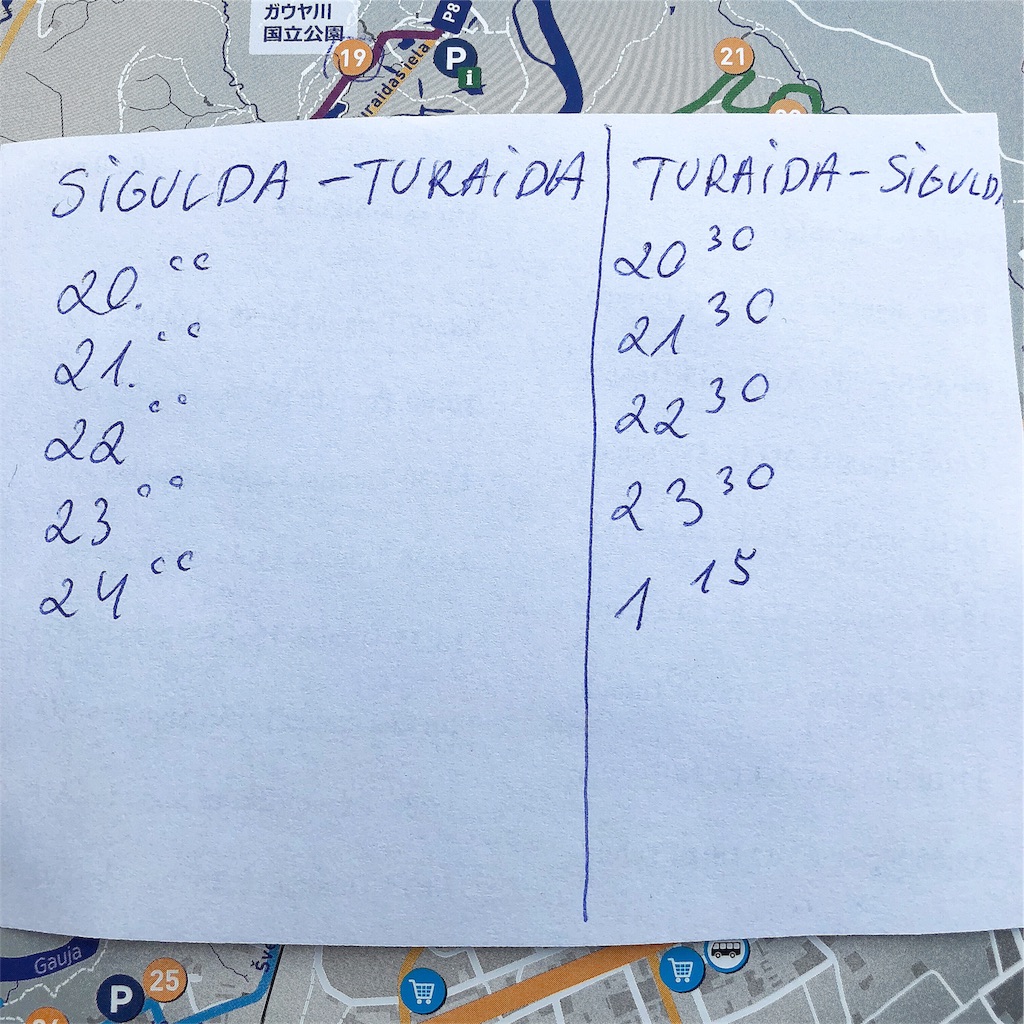 ガウヤ川
国立公園
P8
19
P
i
21
Turaidas iela
SIGULDA - TURAIDA
20.00
21.00
22 00
23 00
24 00
TURAIDA - SIGULDA
20 30
21 30
22 30
23 30
1 15
Gauja
P
25